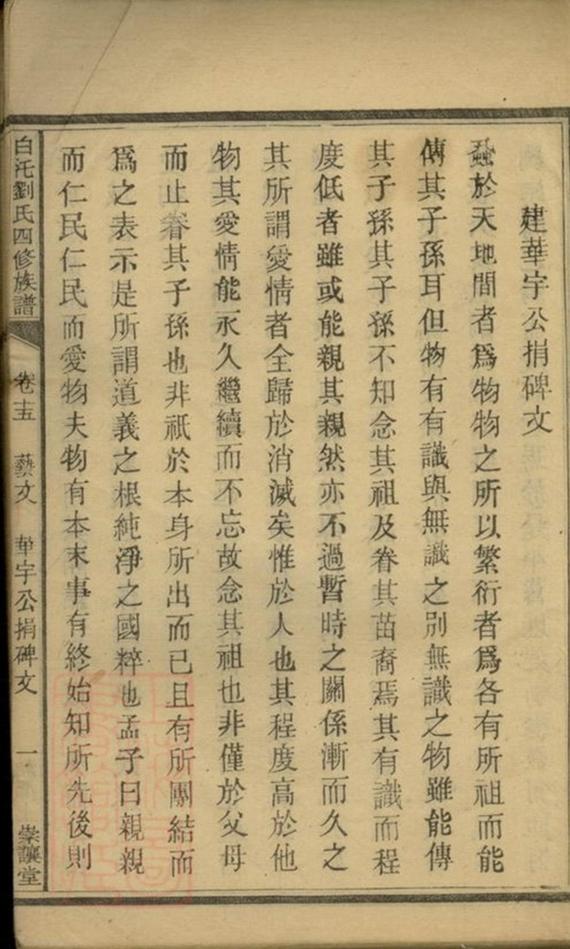 建華宇公捐碑文
蠢於天地間者爲物物之所以繁衍者爲各有所祖而能
傳其子孫耳但物有有識與無識之別無識之物雖能傳
其子孫其子孫不知念其祖及眷其苗裔焉其有識而程
度低者雖或能親其親然亦不過暫時之關係漸而久之
其所謂愛情者全歸於消滅矣惟於人也其程度高於他
物其愛情能永久繼續而不忘故念其祖也非僅於父母
而止眷其子孫也非祇於本身所出而已且有所團結而
爲之表示是所謂道義之根純淨之國粹也孟子曰親親
而仁民仁民而愛物夫物有本末事有終始知所先後則
白沱劉氏四修族譜 卷十五 藝文 華宇公捐碑文 一 崇讓堂